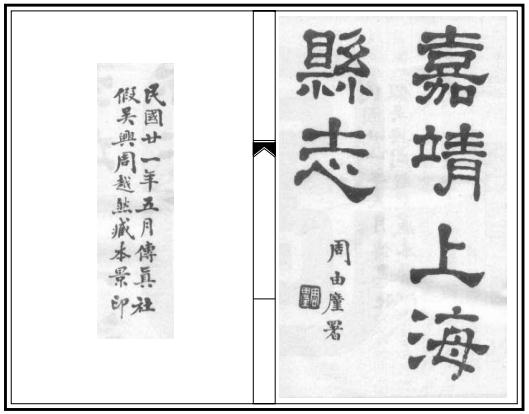 嘉靖上海
縣志
周由廑署
民國廿一年五月傳眞社
假吳興周越然藏本景印